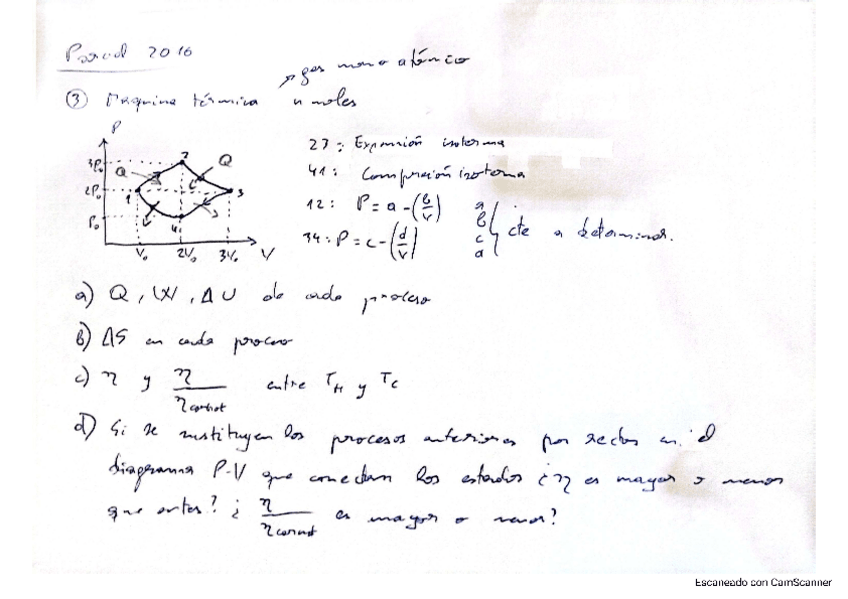 Parcial 2016
→ gas mono atómico
③ Maquina térmica n moles
P
3P₀
2P₀
P₀
Q
Q
1
2
3
4
V₀ 2V₀ 3V₀ V
23: Expansión isoterma
41: Compresión isoterma
12: P = a - (b/V)
34: P = c - (d/V)
a
b
c
d
cte a determinar.
a) Q, W, ΔU de cada proceso
b) ΔS en cada proceso
c) η y η/ηcarnot entre TH y TC
d) Si se sustituyen los procesos anteriores por rectas en el
diagrama P-V que conectan los estados ¿η es mayor o menor
que antes? ¿ η/ηcarnot es mayor o menor?
Escaneado con CamScanner